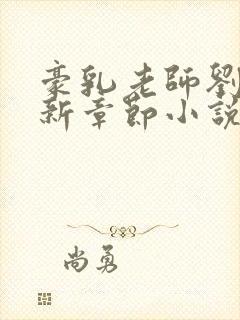 豪乳老師劉
新章節小說
尚勇